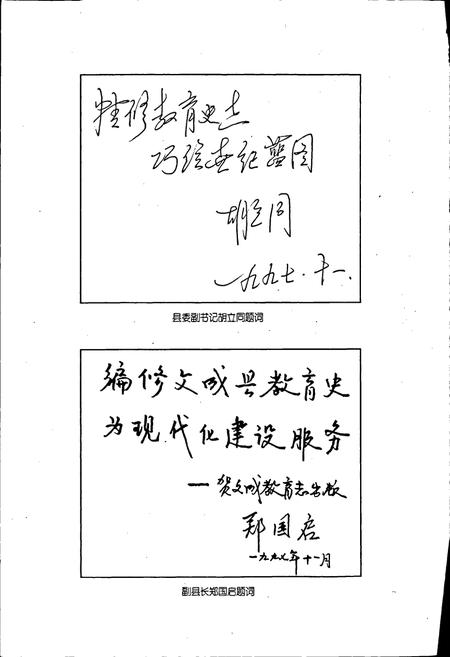 精修教育史志
巧绘世纪蓝图
胡立同
一九九七.十一.
县委副书记胡立同题词
编修文成县教育史
为现代化建设服务
—贺文成教育志出版
郑国启
一九九七年十一月
副县长郑国启题词